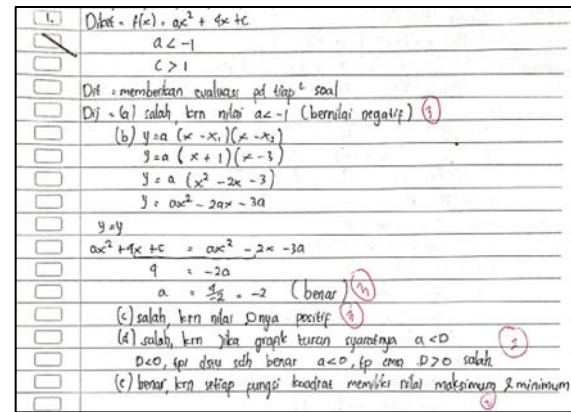 1. Diket = f(x) = ax² + 4x + c
a < -1
c > 1
Dit = memberikan evaluasi pd tiap² soal
Dij = (a) salah, krn nilai a < -1 (bernilai negatif) 3
(b) y = a (x - x₁)(x - x₂)
y = a (x + 1)(x - 3)
y = a (x² - 2x - 3)
y = ax² - 2ax - 3a
y = y
ax² + 4x + c = ax² - 2x - 3a
4 = -2a
a = 4/-2 = -2 (benar)
(c) salah, krn nilai D nya positif 3
(d) salah, krn jika grafik turun syaratnya a < 0 2
D<0, tpi disu sdh benar a<0, tp D>0 salah
(e) benar, krn setiap fungsi kuadrat memiliki nilai maksimum & minimum